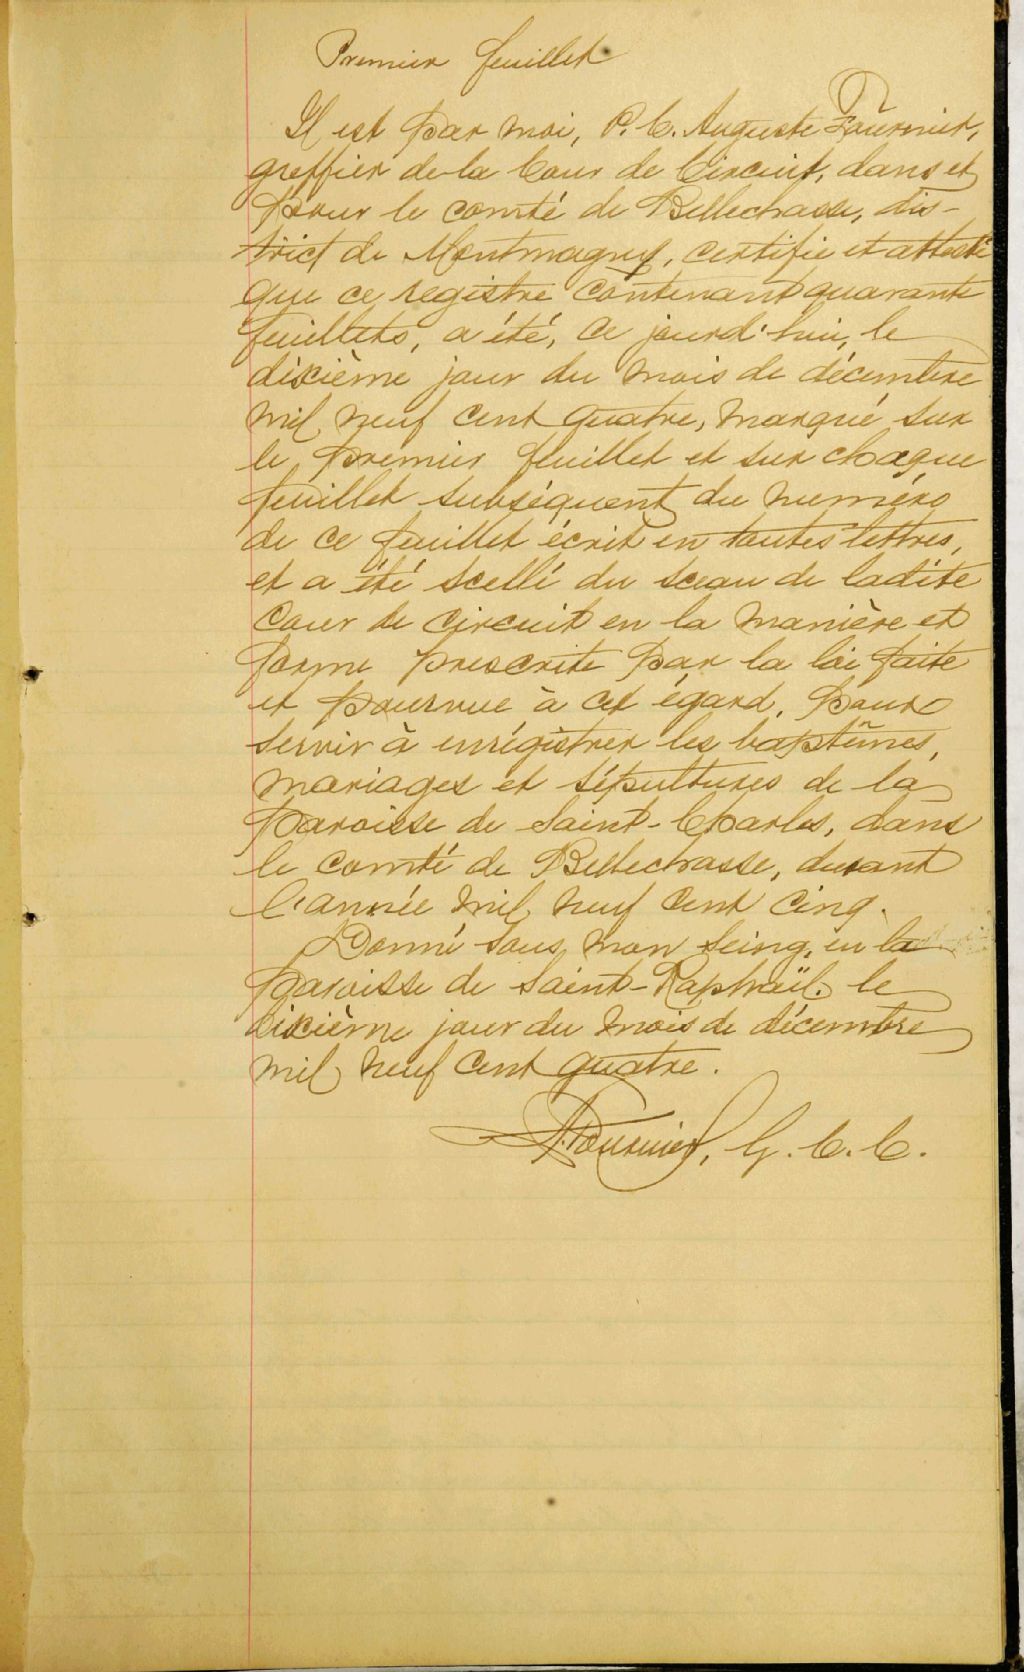 Premier feuillet
Il est par moi, P. C. Auguste Fournier,
greffier de la Cour de Circuit, dans et
pour le comté de Bellechasse, dis-
trict de Montmagny, certifie et attesté
que ce registre contenant quarante
feuillets, a été, ce jourd'hui, le
dixième jour du mois de décembre
mil neuf cent quatre, marqué sur
le premier feuillet et sur chaque
feuillet subséquent du numéro
de ce feuillet écrit en toutes lettres,
et a été scellé du sceau de ladite
Cour de Circuit en la manière et
forme prescrite par la loi faite
et pourvue à cet égard, pour
servir à enrégistrer les baptêmes,
mariages et sépultures de la
Paroisse de Saint-Charles, dans
le comté de Bellechasse, durant
l'année mil neuf cent cinq.
Donné sous mon seing, en la
paroisse de Saint-Raphaël, le
dixième jour du mois de décembre
mil neuf cent quatre.
A. Fournier, G. C. C.